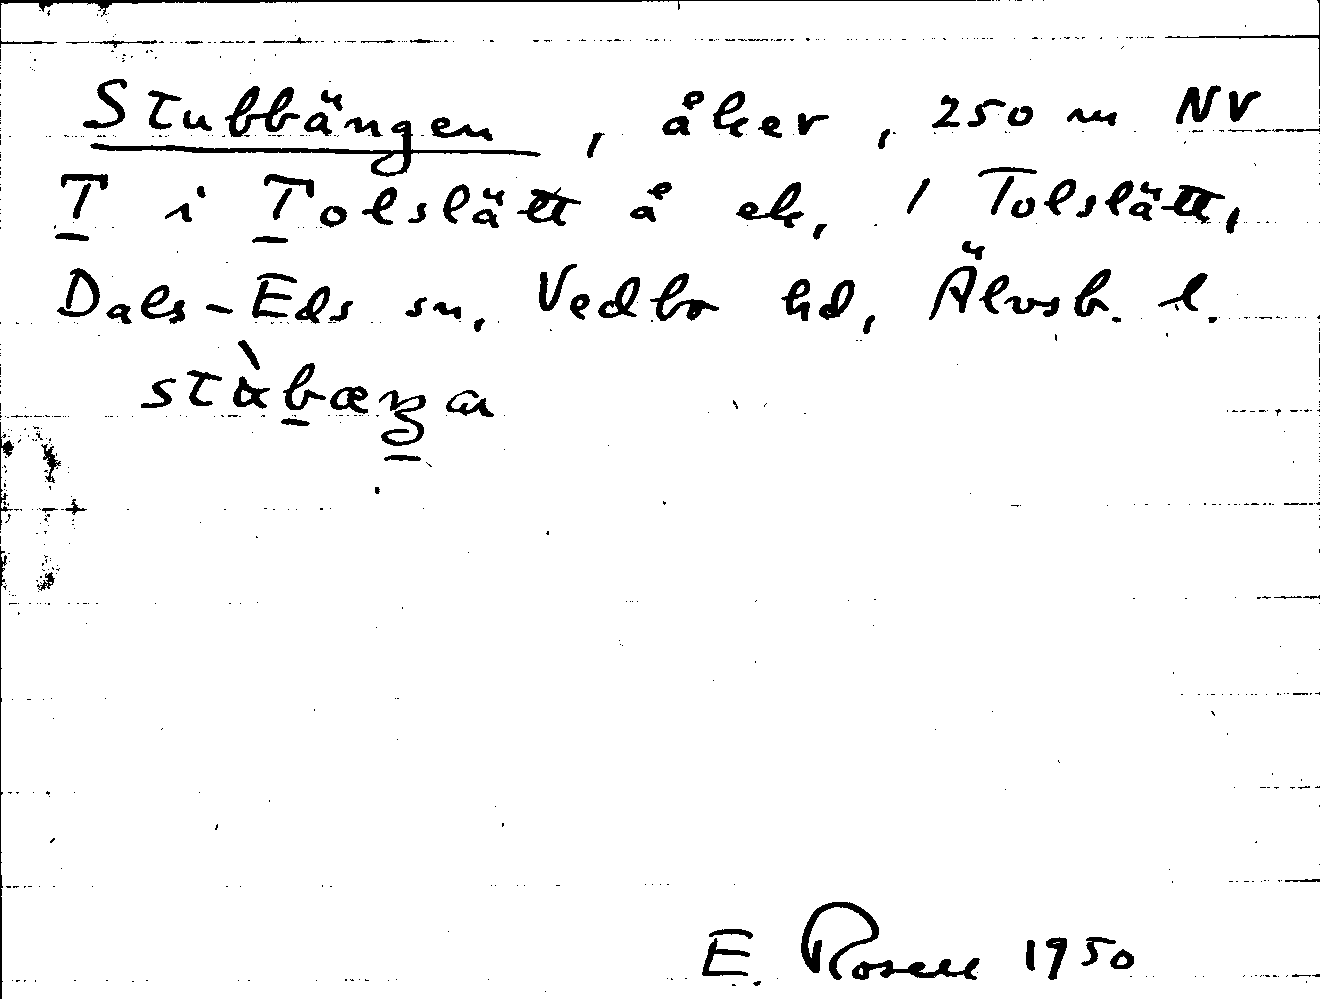 Stubbängen, åker, 250 m NV
T i Tolslätt å ek, 1 Tolslätt,
Dals-Eds sn, Vedbo hd, Älvsb. l.
E. Rosell 1950